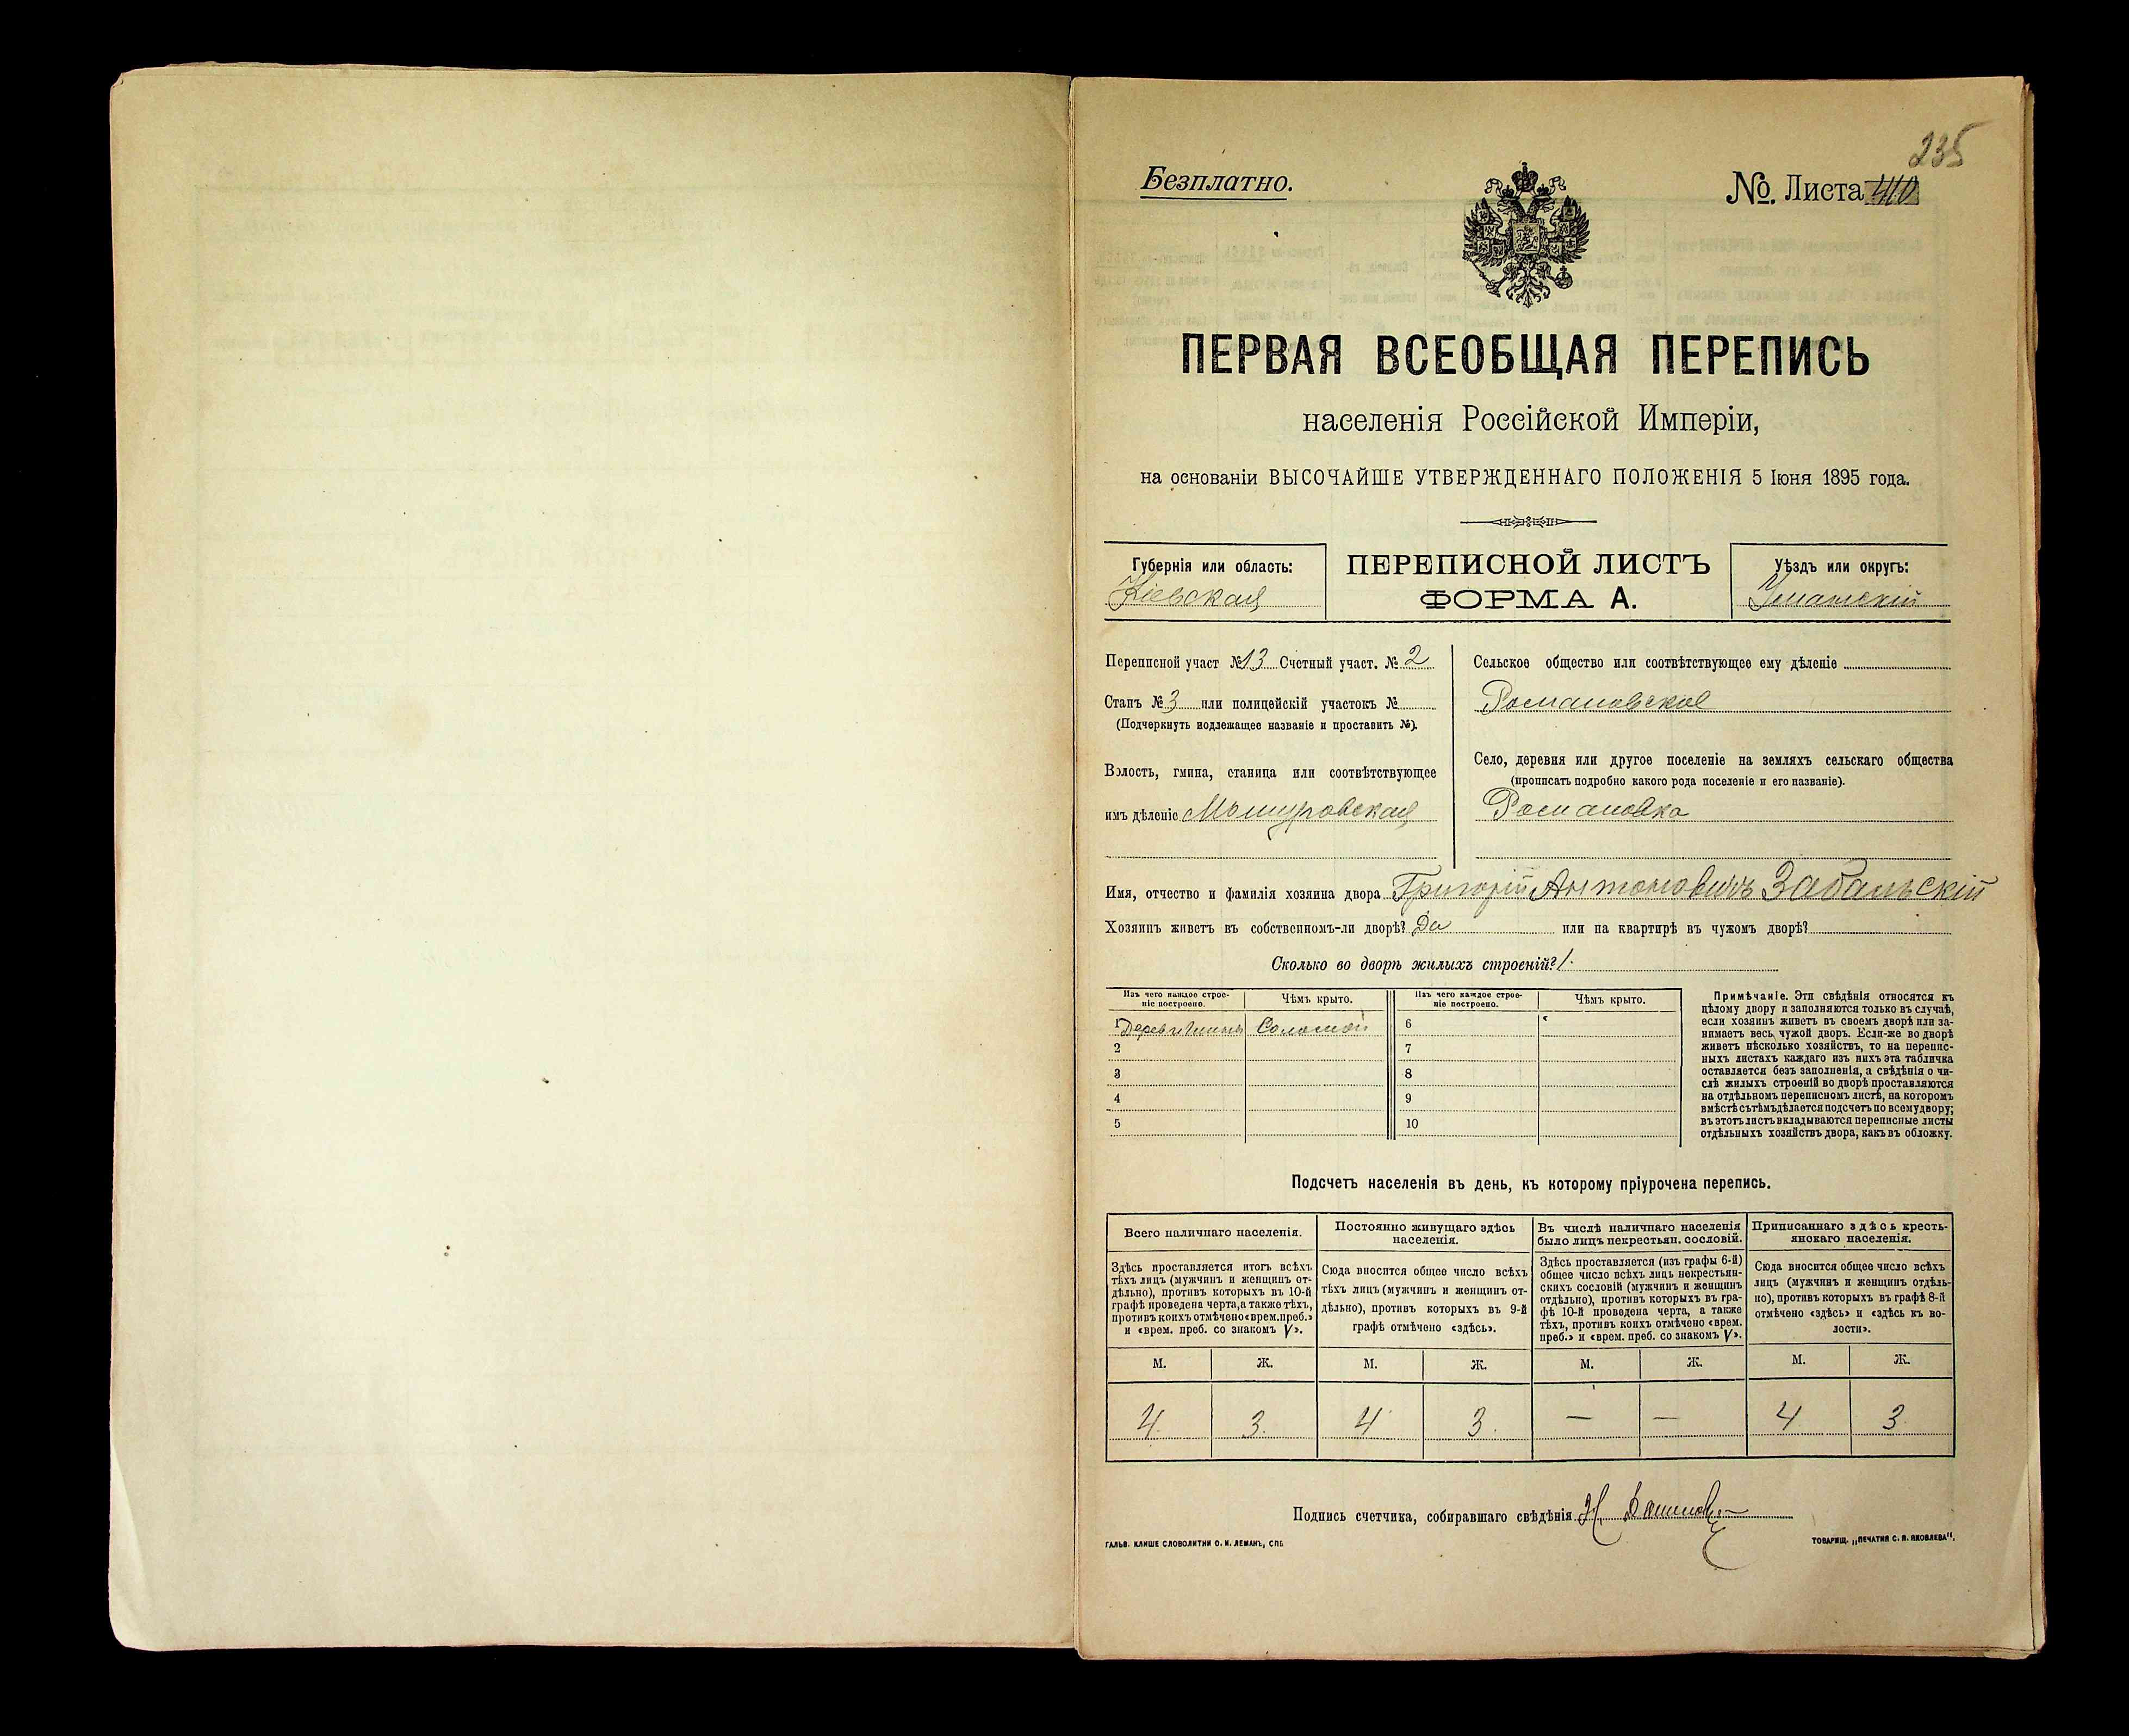 235
Безплатно.
№. Листа
ПЕРВАЯ ВСЕОБЩАЯ ПЕРЕПИСЬ
населенія Россійской Имперіи,
на основаніи ВЫСОЧАЙШЕ УТВЕРЖДЕННАГО ПОЛОЖЕНІЯ 5 Іюня 1895 года.
Губернія или область:
Кіевская
ПЕРЕПИСНОЙ ЛИСТЪ
ФОРМА А.
Уѣздъ или округъ:
Уманскій
Переписной участ №13 Счетный участ. № 2
Станъ № 3 или полицейскій участокъ №
(Подчеркнуть подлежащее названіе и проставить №).
Волость, гмина, станица или соотвѣтствующее
имъ дѣленіе Мошуровская
Сельское общество или соотвѣтствующее ему дѣленіе
Романовское
Село, деревня или другое поселеніе на земляхъ сельскаго общества
(прописать подробно какого рода поселеніе и его названіе).
Романовка
Имя, отчество и фамилія хозяина двора Григорій Антоновичъ Забальскій
Хозяинъ живетъ въ собственномъ-ли дворѣ? Да или на квартирѣ въ чужомъ дворѣ?
Сколько во дворѣ жилыхъ строеній? 1.
Изъ чего каждое строе-
ніе построено.
Чѣмъ крыто.
Изъ чего каждое строе-
ніе построено.
Чѣмъ крыто.
1 Соломой 6
2 7
3 8
4 9
5 10
Примѣчаніе. Эти свѣдѣнія относятся къ
цѣлому двору и заполняются только въ случаѣ,
если хозяинъ живетъ въ своемъ дворѣ или за-
нимаетъ весь чужой дворъ. Если-же во дворѣ
живетъ нѣсколько хозяйствъ, то на перепис-
ныхъ листахъ каждаго изъ нихъ эта табличка
оставляется безъ заполненія, а свѣдѣнія о чи-
слѣ жилыхъ строеній во дворѣ проставляются
на отдѣльномъ переписномъ листѣ, на которомъ
вмѣстѣ съ тѣмъ дѣлается подсчетъ по всему двору;
въ этотъ листъ вкладываются переписные листы
отдѣльныхъ хозяйствъ двора, какъ въ обложку.
Подсчетъ населенія въ день, къ которому пріурочена перепись.
Всего наличнаго населенія.
Здѣсь проставляется итогъ всѣхъ
тѣхъ лицъ (мужчинъ и женщинъ от-
дѣльно), противъ которыхъ въ 10-й
графѣ проведена черта, а также тѣхъ,
противъ коихъ отмѣчено «врем. преб.»
и «врем. преб. со знакомъ V».
Постоянно живущаго здѣсь
населенія.
Сюда вносится общее число всѣхъ
тѣхъ лицъ (мужчинъ и женщинъ от-
дѣльно), противъ которыхъ въ 9-й
графѣ отмѣчено «здѣсь».
Въ числѣ наличнаго населенія
было лицъ некрестьян. сословій.
Здѣсь проставляется (изъ графы 6-й)
общее число всѣхъ лицъ некрестьян-
скихъ сословій (мужчинъ и женщинъ
отдѣльно), противъ которыхъ въ гра-
фѣ 10-й проведена черта, а также
тѣхъ, противъ коихъ отмѣчено «врем.
преб.» и «врем. преб. со знакомъ V».
Приписаннаго здѣсь кресть-
янскаго населенія.
Сюда вносится общее число всѣхъ
лицъ (мужчинъ и женщинъ отдѣль-
но), противъ которыхъ въ графѣ 8-й
отмѣчено «здѣсь» и «здѣсь къ во-
лости».
М. Ж. М. Ж. М. Ж. М. Ж.
4. 3. 4 3. — — 4 3
Подпись счетчика, собиравшаго свѣдѣнія
ГАЛЬВ. КЛИШЕ СЛОВОЛИТНИ О. И. ЛЕМАНЪ, СПБ
ТОВАРИЩ. „ПЕЧАТНЯ С. П. ЯКОВЛЕВА".